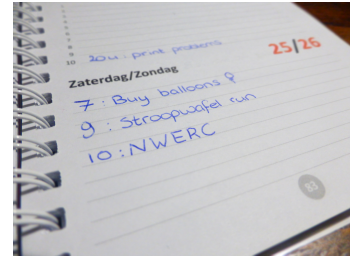 9
10 20u: print problems
25/26
Zaterdag/Zondag
7: Buy balloons
9: Stroopwafel run
10: NWERC
83